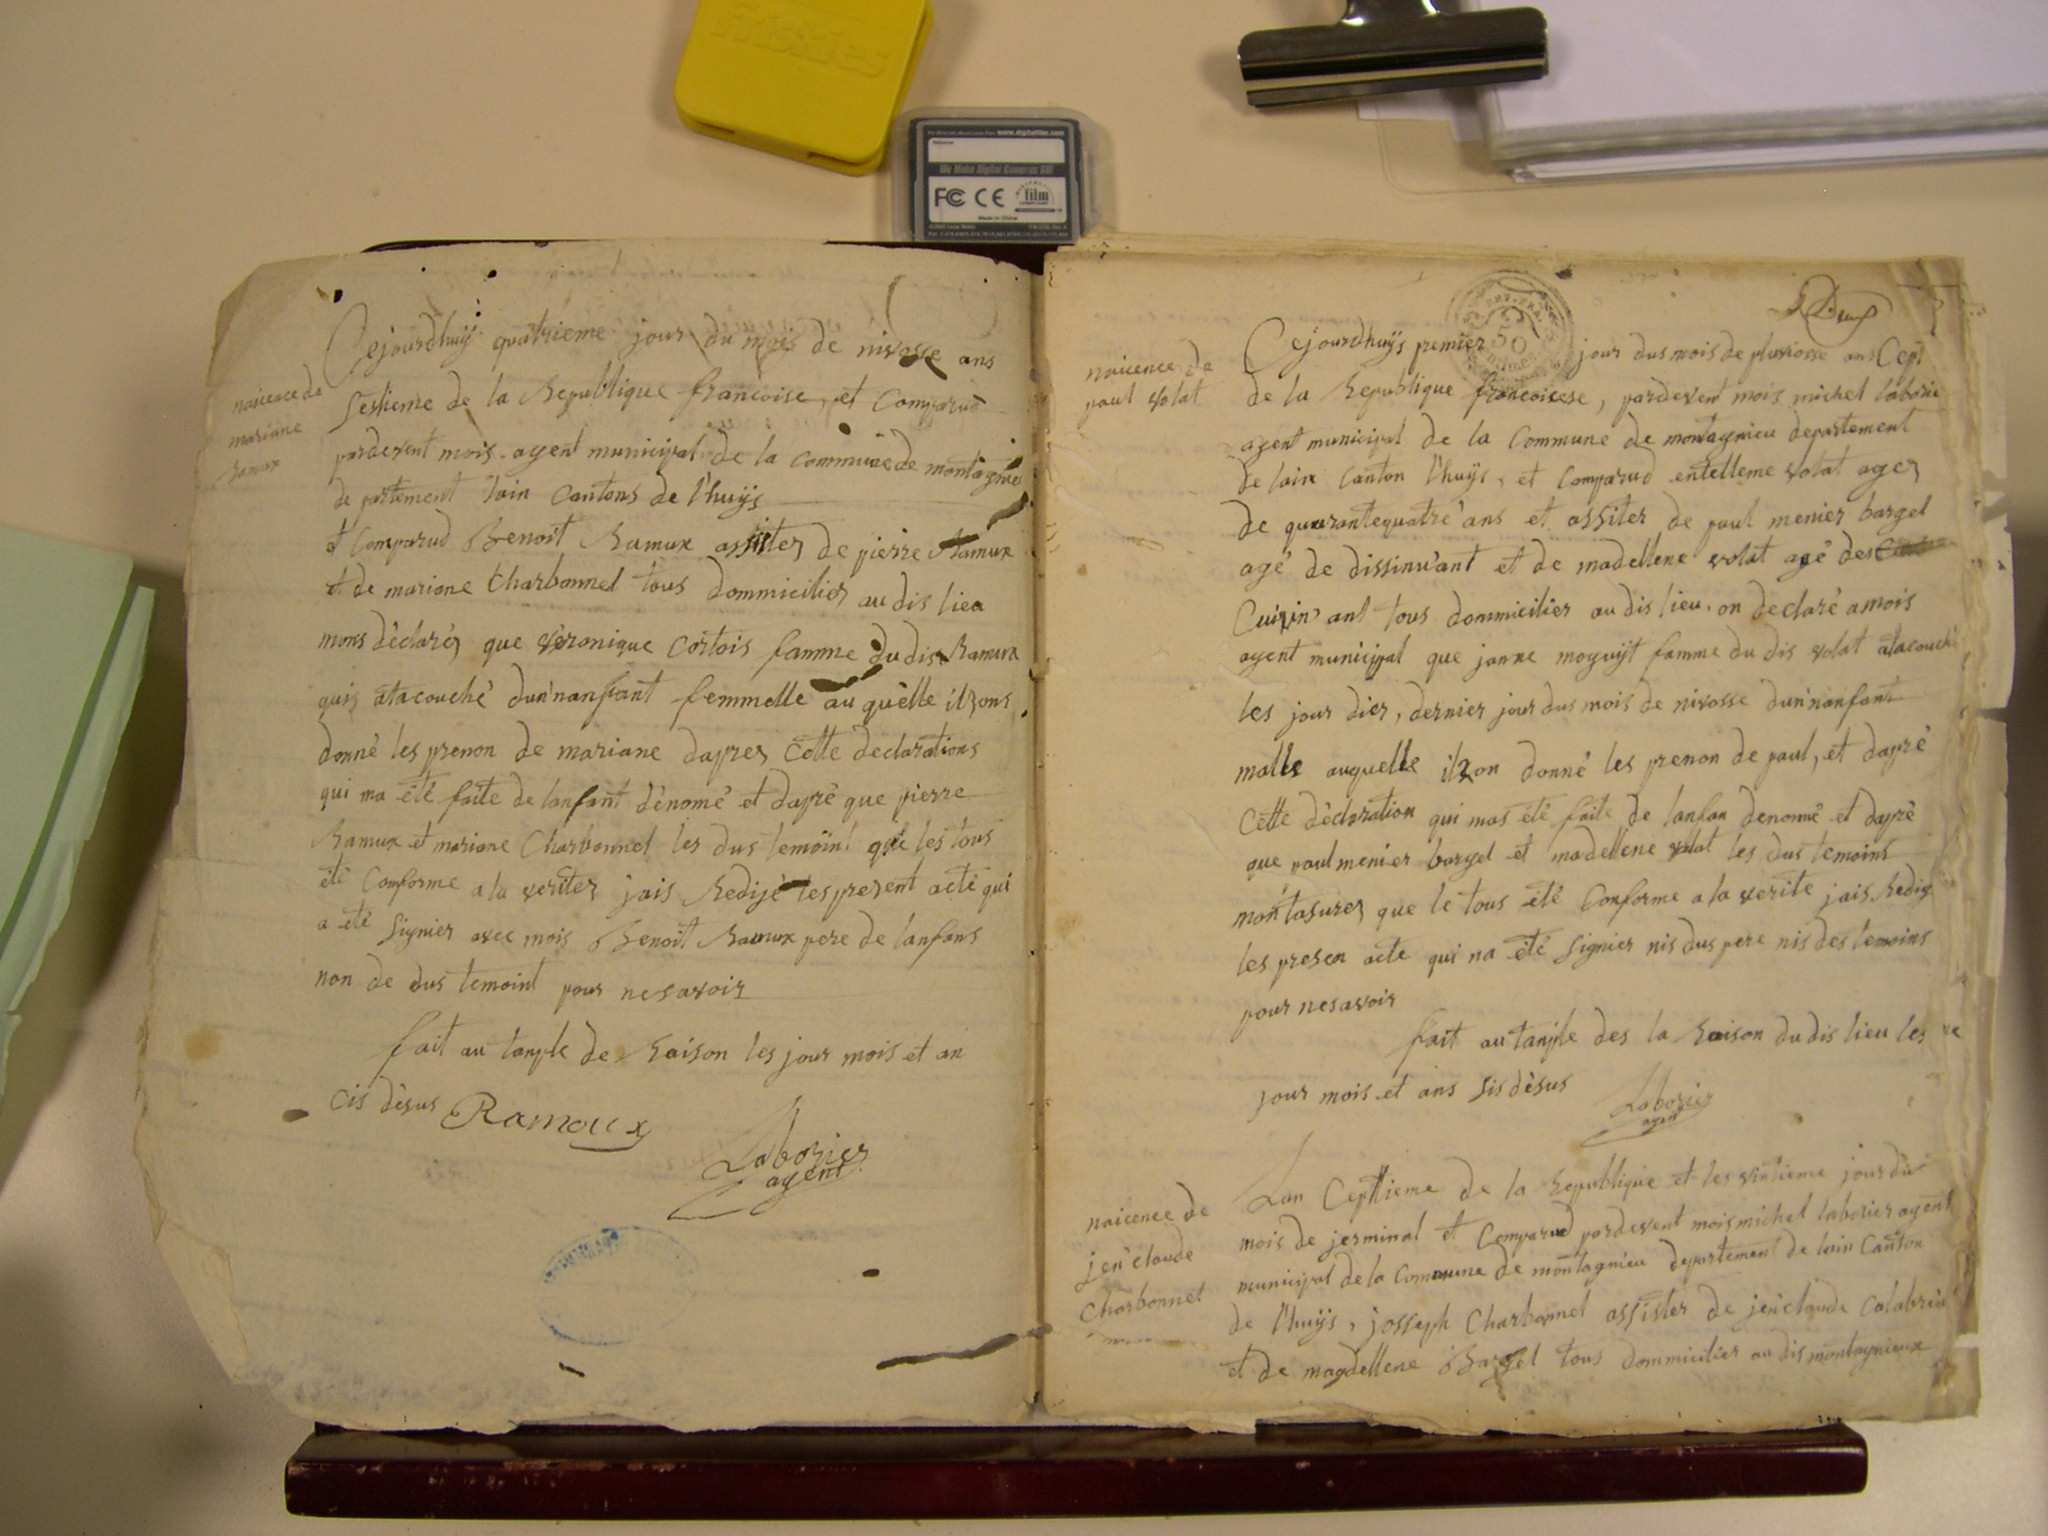 Friskies
www.digitalfilm.com
We Make Digital Cameras
FC CE film
Made in China
naicence de
mariane
Ramux
Cejourdhuij quatrieme jour du mois de nivosse ans
Sestieme de la Republique francoise, et Comparud
pardevent mois agent municipal de la commune de montagnieu
de partement lain Cantons de l'huijs
et Comparud Benoit Ramux assister de pierre Ramux
et de mariane Charbonnel tous dommicilier au dis lieu
mons déclarér que véronique Cortois famme du dis Ramux
quis atacouché dun'nanfant femmelle au quèlle ilzons
donné les prenon de mariane daprer Cette declarations
qui ma été faite de lanfant dénomé et dapré que pierre
Ramux et mariane Charbonnel les dus temoint que les tous
été Conforme a la veriter jais Redijé les present acte qui
a été Signier avec mois Benoit Ramux pere de lanfans
non de dus temoint pour nesavoir
fait au tanple de Raison les jour mois et an
cis désus Ramoux
Laborier
agent
naicence de
paul volat
50
Cejourdhuijs premier jour dus mois de pluviosse ans Cept
de la Republique francoicese, pardevent mois michel laborie
agent municipal de la Commune de montagnieu departement
de lain Canton l'huijs, et Comparud entelleme volat ager
de quarantequatre ans et assiter de paul menier bargel
agé de dissinv'ant et de madellene volat agé des
Cuizin' ant tous dommicilier au dis lieu. on declaré a mois
agent municipal que janne moguijt famme du dis volat atacouché
les jour dier, dernier jour dus mois de nivosse dun'nanfant
malle auquelle ilzon donné les prenon de paul, et dapré
Cette déclaration qui mas été faite de lanfan denommé et dapré
que paul menier bargel et madellene volat les dus temoins
montasurer que le tous été Conforme a la verite jais Redig
les presen acte qui na été Signier nis dus pere nis des temoins
pour nesavoir
fait au tanple des la Raison du dis lieu les
jour mois et ans sis désus
Laborier
agent
naicence de
jen'claude
Charbonnel
Lan Ceptieme de la Republique et les vintieme jour du
mois de jerminal et Comparud pardevent mois michel laborier agent
municipal de la Commune de montagnieu departement de lain Canton
de l'huijs, josseph Charbonnel assister de jen'claude Calabrin
et de magdellene Bargel tous dommicilier au dis montagnieux